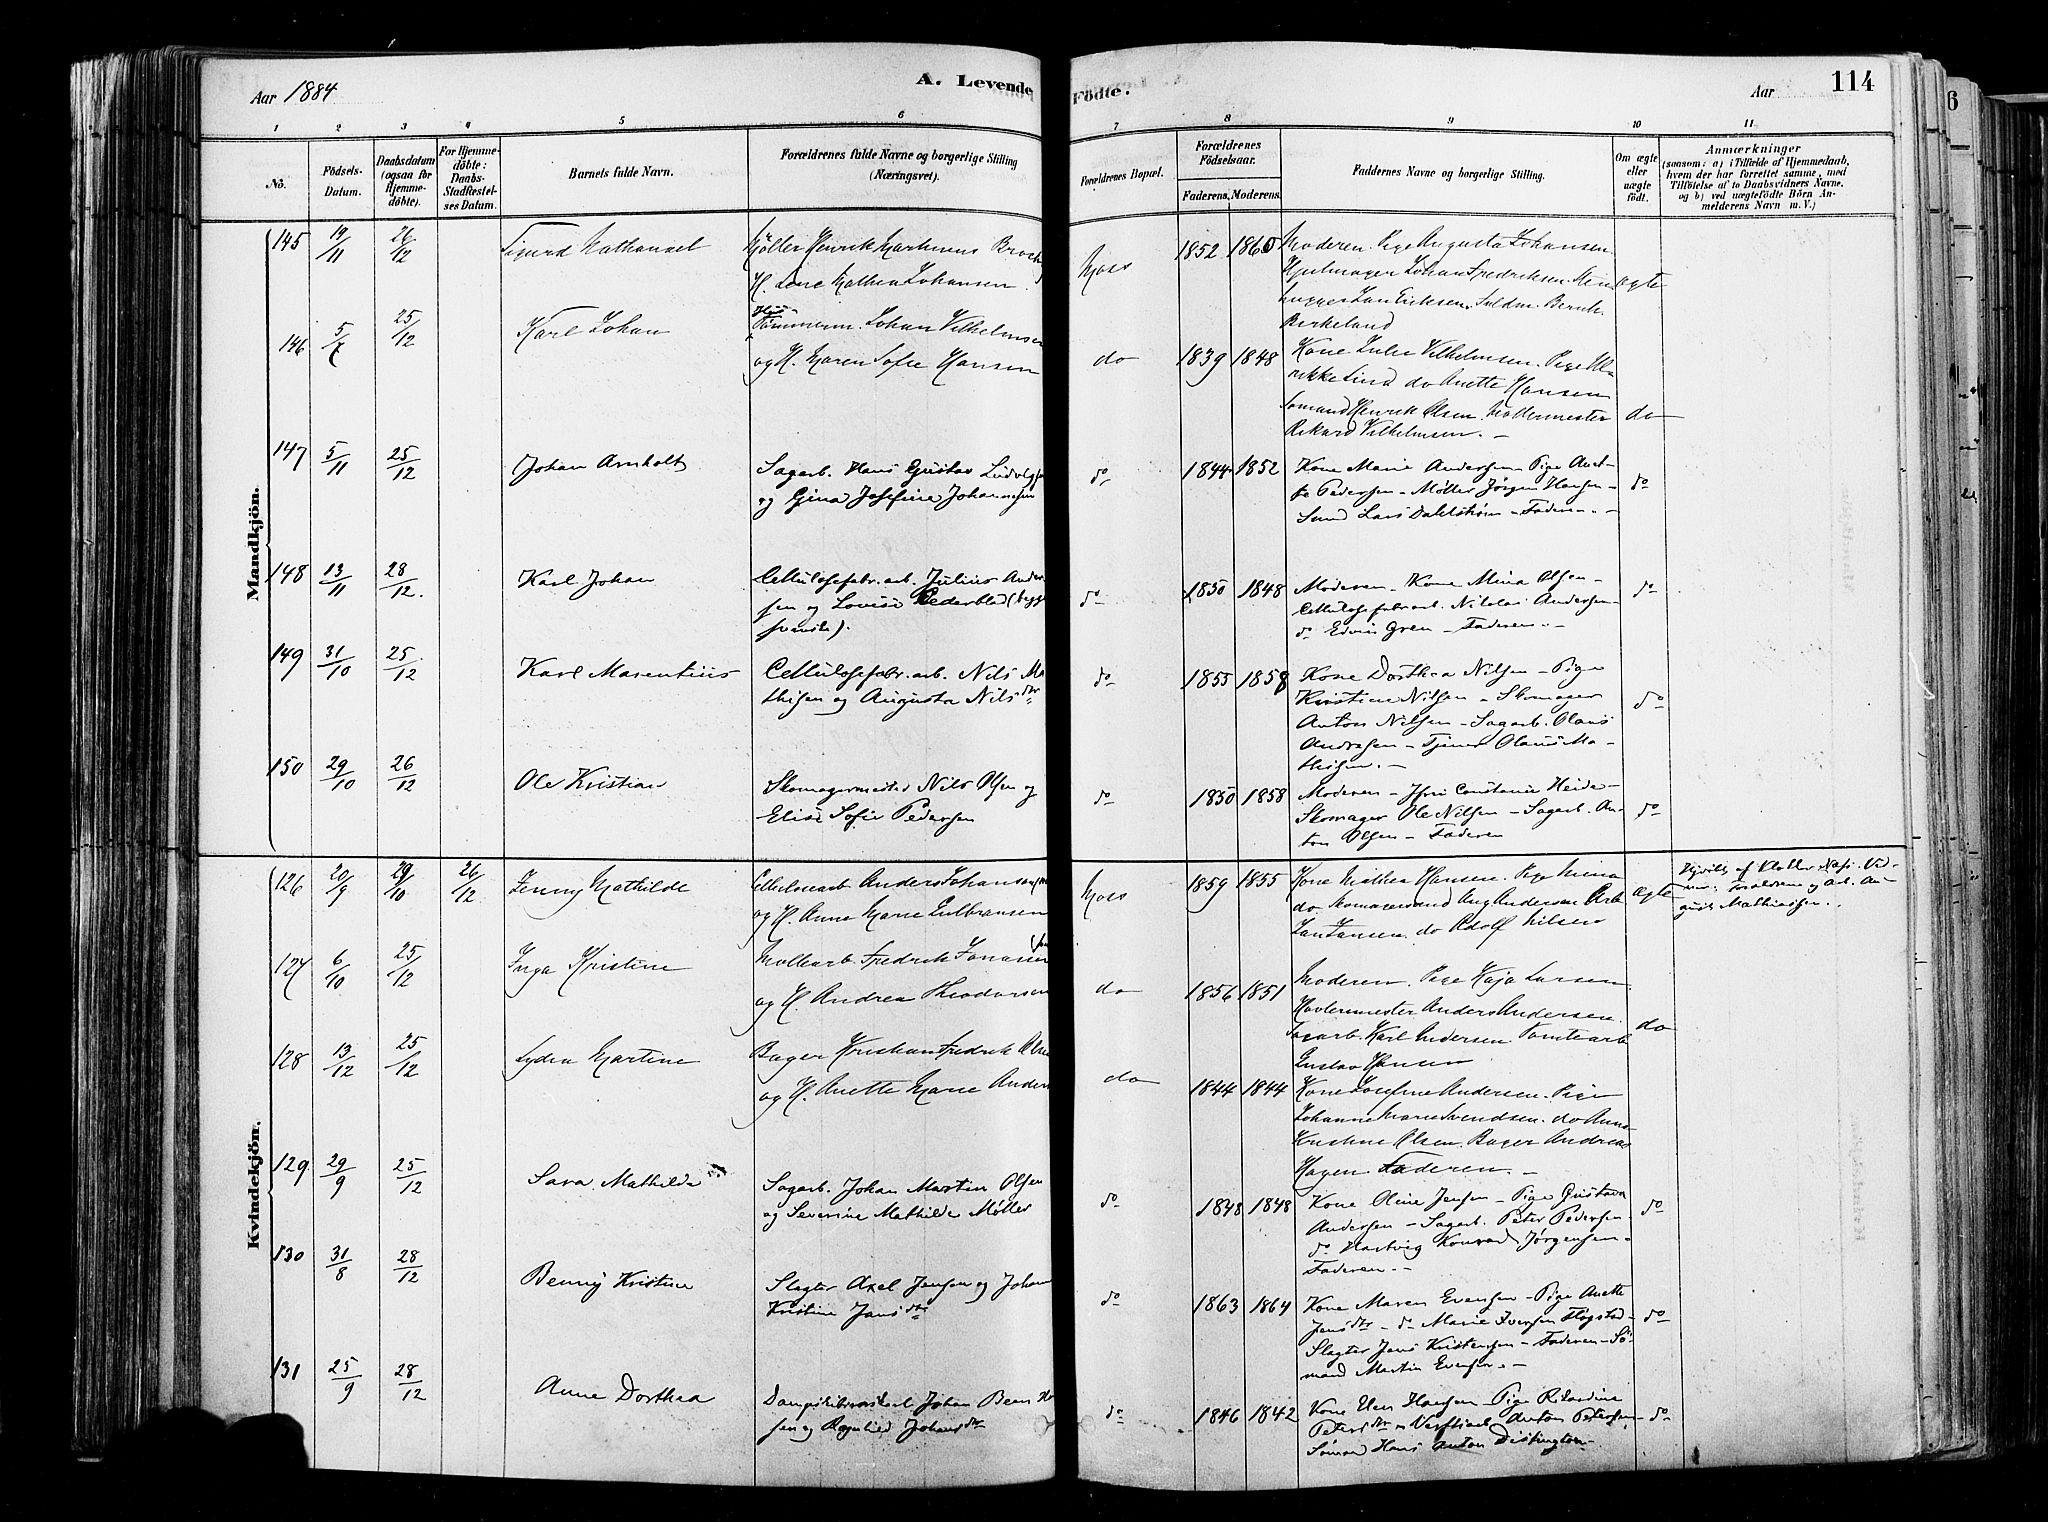 Aar 1884
A. Levende
Födte.
Aar
114
1 2 3 4 5 6 7 8 9 10 11
No.
Födsels-
Datum.
Daabsdatum
(ogsaa for
Hjemme-
döbte).
For Hjemme-
döbte:
Daabs-
Stadfæstel-
ses Datum.
Barnets fulde Navn.
Forældrenes fulde Navne og borgerlige Stilling
(Næringsvei).
Forældrenes Bopæl.
Forældrenes
Födselsaar.
Faderens. Moderens.
Faddernes Navne og borgerlige Stilling.
Om ægte
eller
uægte
födt.
Anmærkninger
(saasom: a) i Tilfælde af Hjemmedaab,
hvem der har forrettet samme, med
Tilföielse af to Daabsvidners Navne,
og b) ved uægtefödte Börn An-
melderens Navn m. V.)
Mandkjön.
145 19/11 26/12 Sigurd Nathanael Møller Henrik Martinius
H. Lene Mathea Johansen.
Moss 1852 1860 Moderen. Pige Augusta Johansen
Hjulmager Johan Fredriksen. Sten ægte
hugger Jan Eriksen. Bernh.
Birkeland
146 5/X 25/12 Karl Johan Tømmerm. Johan Vilhelmsen
og H. Maren Sofie Hansen
do 1839 1848 Kone Julie Vilhelmsen. Pige Ul-
rikke Lind do Anette Hansen
Sømand Henrik Olsen. Malermester do
Rikard Vilhelmsen. —
147 5/11 25/12 Johan Arnholt Sagarb. Hans Gustav Ludvigsen
og Gina Josefine Johannesen
do 1844 1852 Kone Marie Andersen – Pige Anet-
te Pedersen – Møller Jørgen Hansen – do
Smed Lars Dahlstrøm – Faderen. –
148 13/11 28/12. Karl Johan Cellulosefabr. arb. Julius Ander-
sen og Lovise Cederblad (begge
svenske).
do 1850 1848 Moderen – Kone Mina Olsen – do
Cellulosefabrarb. Nikolai Andersen –
do Edvin Gren – Faderen. –
149 31/10 25/12 Karl Marentius Cellulosefabr. arb. Nils Ma-
thisen og Augusta Nilsdtr
do 1855 1858 Kone Dorthea Nilsen – Pige
Kristine Nilsen – Skomager do
Anton Nilsen – Sagarb. Olaus
Andresen – Tjener Olaus Ma-
thisen. –
150 29/10 26/12 Ole Kristian Skomagermester Nils Olsen og
Elise Sofie Pedersen
do 1850 1858 Moderen – Jfr. Constance Heide –
Skomager Ole Nilsen – Sagarb. An- do
ton Olsen – Faderen
Kvindekjön.
126 20/9 29/10 26/12 Jenny Mathilde Cellulosearb Anders Johansen
og H. Anne Marie Gulbransen
Moss 1859 1855 Kone Mathea Hansen. Pige Mina
do. Skomagersvend Aug Andersen Arb Ægte
Jan Jansen. do Adolf Nilsen
Forældrene og Arb. Au-
gust Mathiasen.
127 6/10 25/12 Inga Kristine Møllearb. Fredrik Jonassen
og H. Andrea Theodorsen
do 1856 1851 Moderen. Pige Kaja Larsen.
Høvlermester Anders Andersen.
Sagarb. Karl Andersen Tomtearb do
Gustav Hansen
128 13/12 25/12 Lydia Martine Bager Kristian Fredrik Olsen
og H. Anette Marie Anders
do 1844 1844 Kone Josefine Andersen. Pige
Johanne Marie Svendsen. do Anna
Kristine Olsen. Bager Andreas
Hagen. Faderen. –
129 29/9 25/12 Sara Mathilde Sagarb. Johan Martin Olsen
og Severine Mathilde Møller
do 1848 1848 Kone Oline Jensen – Pige Gustava do
Andersen – Sagarb. Peter Pedersen –
do Hartvig Konrad Jørgensen –
Faderen. –
130 31/8 28/12 Benny Kristine Slagter Axel Jensen og Johan
Kristine Jansdtr
do 1863 1864 Kone Maren Evensen – Pige Anette
Jensdtr – do Marie Iversen Høgstad – do
Slagter Jens Kristensen – Faderen – Sø-
mand Martin Evensen. –
131 25/9 28/12 Anne Dorthea Johan Bernt Ha
sen og Ragnhild Johansdtr
do 1846 1842 Kone Elen Hansen – Pige Rikardine
Petersdtr – Værftsarb. Anton Petersen – do
Sømand Hans Anton Distington –
6